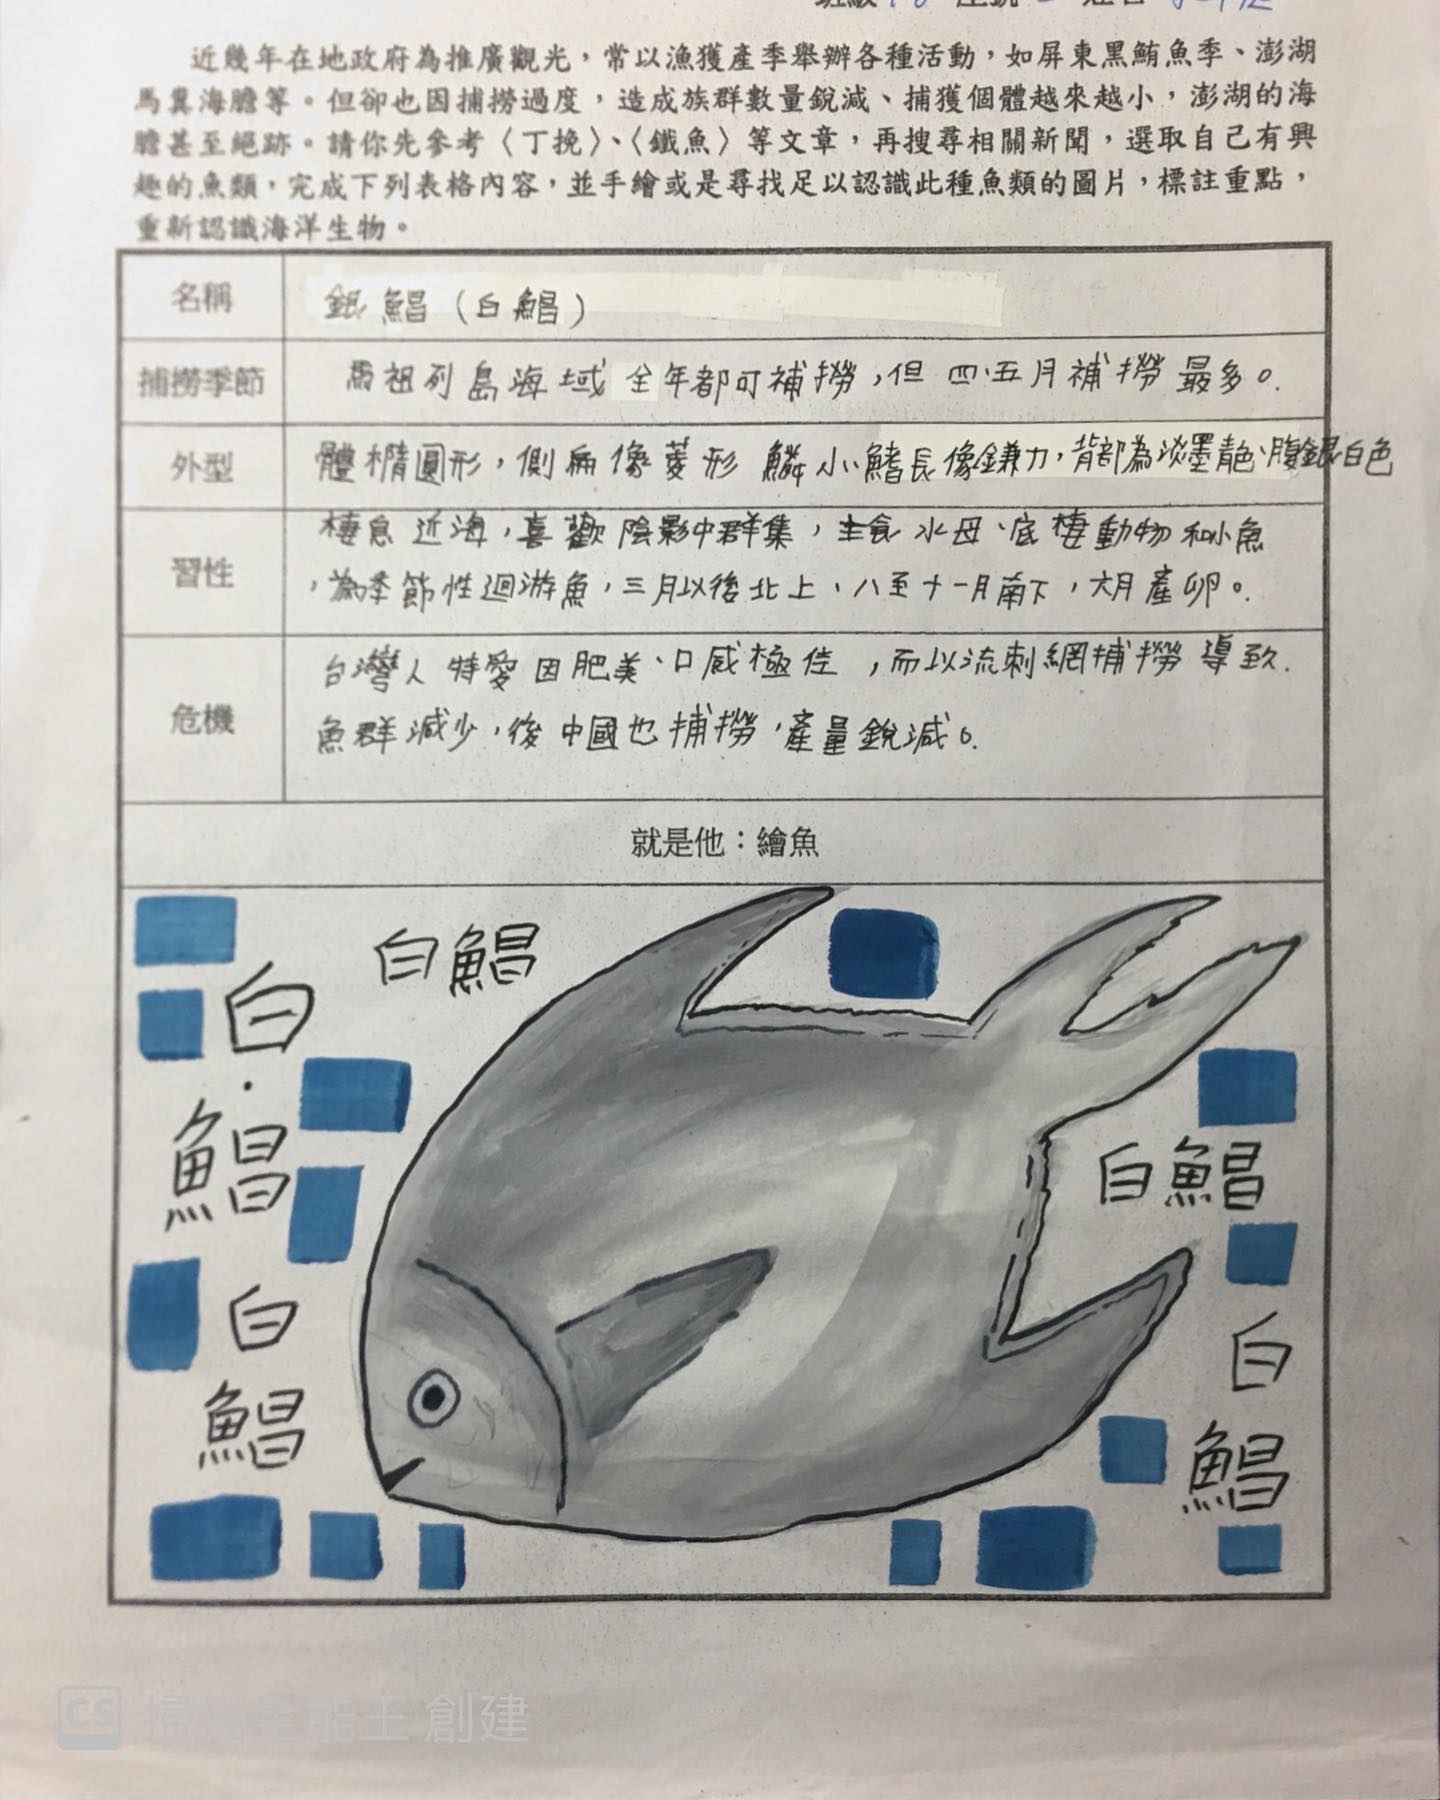 近幾年在地政府為推廣觀光，常以漁獲產季舉辦各種活動，如屏東黑鮪魚季、澎湖
馬糞海膽等。但卻也因捕撈過度，造成族群數量銳減、捕獲個體越來越小，澎湖的海
膽甚至絕跡。請你先參考〈丁挽〉、〈鐵魚〉等文章，再搜尋相關新聞，選取自己有興
趣的魚類，完成下列表格內容，並手繪或是尋找足以認識此種魚類的圖片，標註重點，
重新認識海洋生物。
名稱
銀鯧（白鯧）
捕撈季節
馬祖列島海域全年都可補撈，但四、五月補撈最多。
外型
體橢圓形，側扁像菱形 鱗小鰭長像鐮刀，背部為淡墨青色、腹銀白色
習性
棲息近海，喜歡陰影中群集，主食水母、底棲動物和小魚
，為季節性迴游魚，三月以後北上、八至十一月南下，六月產卵。
危機
台灣人特愛因肥美、口感極佳，而以流刺網捕撈導致
魚群減少，後中國也捕撈，產量銳減。
就是他：繪魚
白鯧
白·鯧
白鯧
白鯧
白鯧
CS 掃描全能王 創建